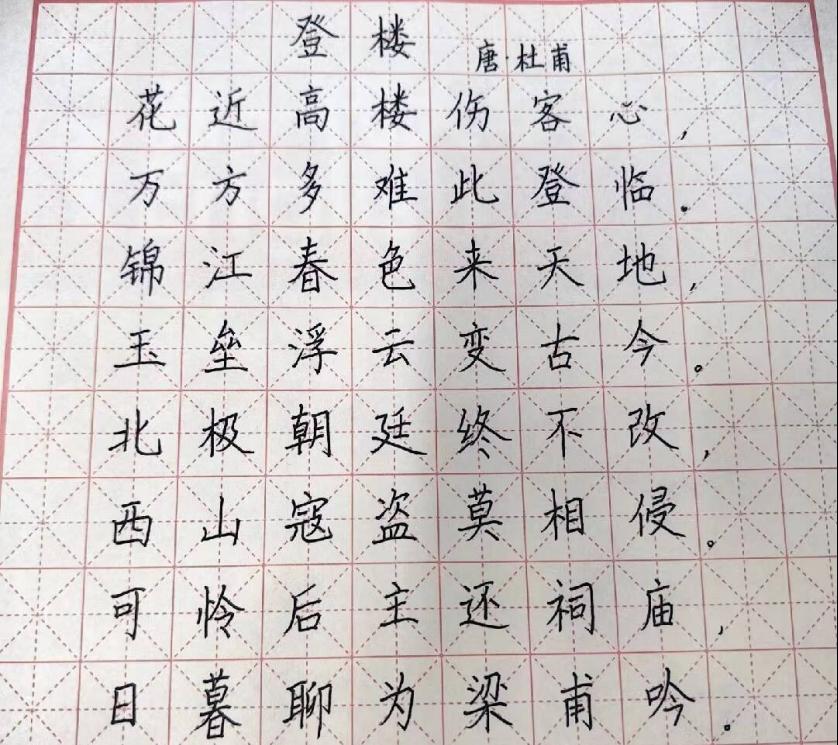 登楼
唐·杜甫
花近高楼伤客心,
万方多难此登临。
锦江春色来天地,
玉垒浮云变古今。
北极朝廷终不改,
西山寇盗莫相侵。
可怜后主还祠庙,
日暮聊为梁甫吟。